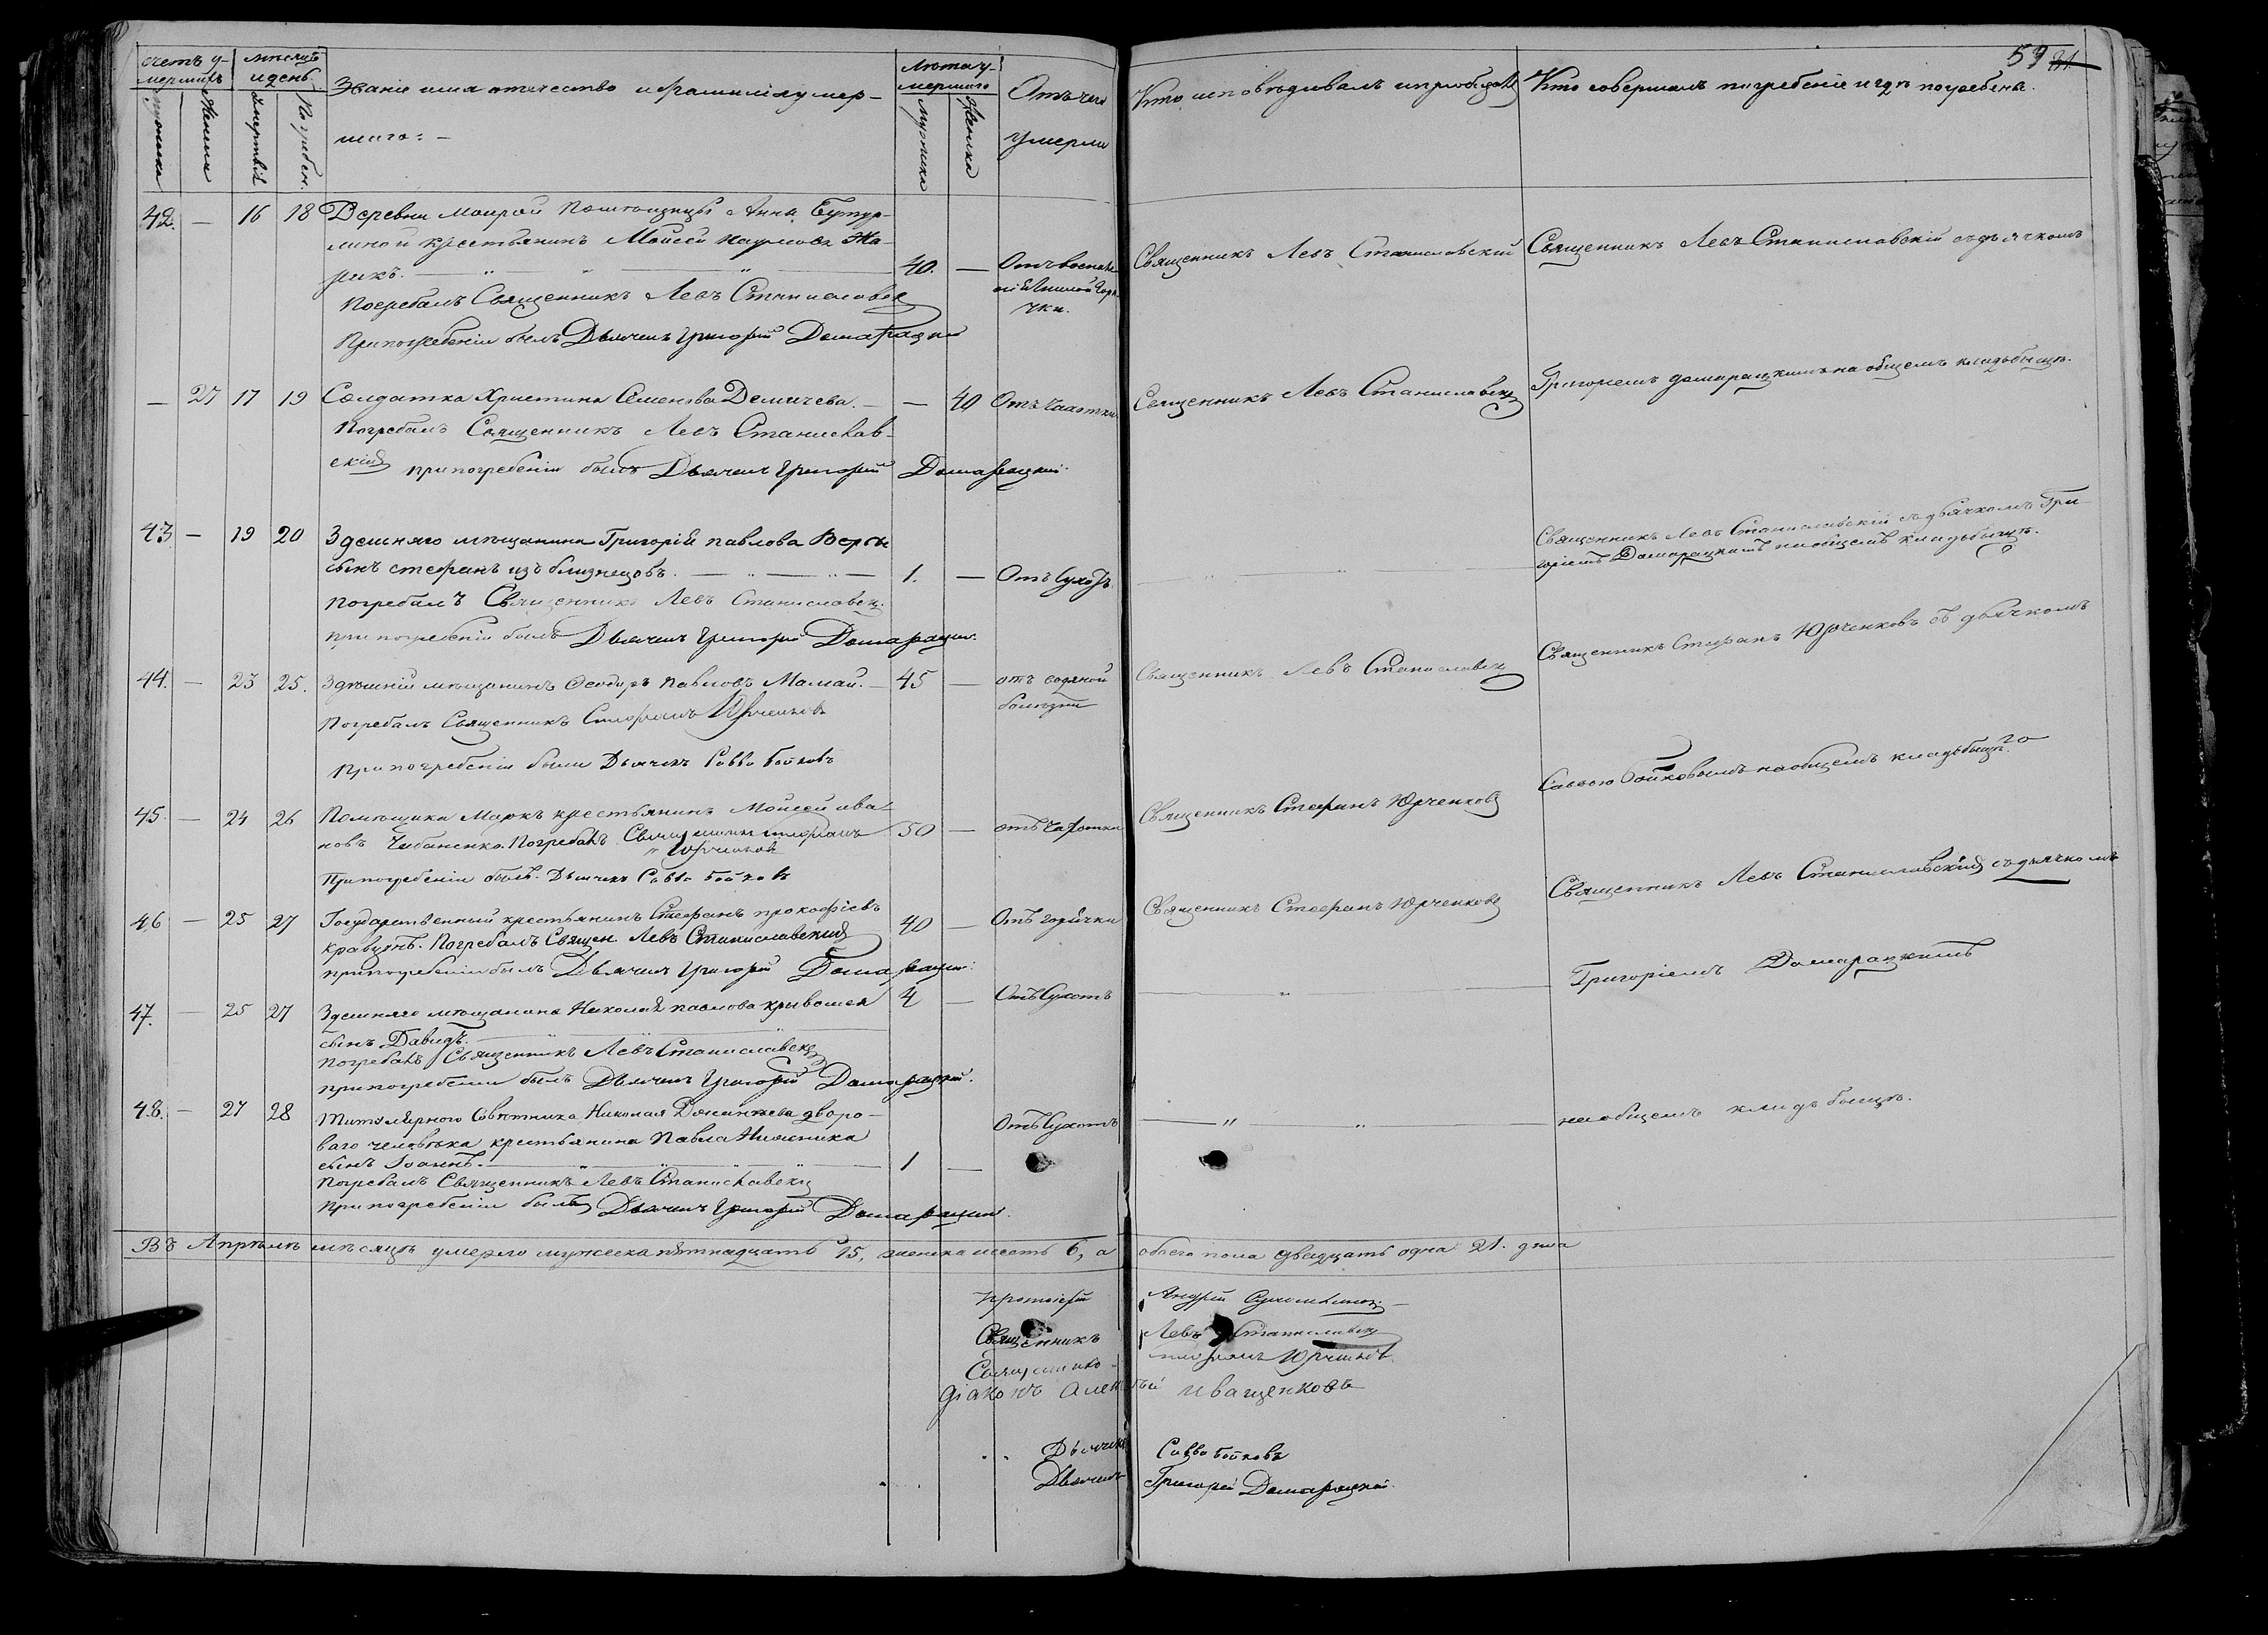 59 31
Счетъ у-
мершихъ
Мѣсяцъ
и день
Званіе имя отечество и фамилія умер-
шаго: —
Лѣта у-
мершаго
Отъ чего
умерли
Кто исповѣдывалъ и пріобщалъ
Кто совершалъ погребеніе и гдѣ погребены.
мужска
женска
смерти
Погребен.
мужска
женска
42. — 16 18 Деревни Помѣщицы Анны Бутур-
линой крестьянинъ Моисей Наумовъ
40. — Отъ воспали
Священникъ Левъ Станиславскій
Священникъ Левъ Станиславскій съ дьячкомъ
Погребалъ Священникъ Левъ Станиславск
чки.
При погребеніи былъ Дьячекъ Григорій Домарацкій
— 27 17 19 Солдатка Христина Семенова Демичева. — — 40 Отъ чахотки
Священникъ Левъ Станиславск
Григоріемъ Домарацкимъ на общемъ кладбищѣ.
Погребалъ Священникъ Левъ Станислав-
скій при погребеніи былъ Дьячекъ Григорій Домарацкій.
43 — 19 20 Здешняго мѣщанина Григорій Павлова
сынъ Стефанъ изъ близнецовъ. — 1. — Отъ Сухотъ.
Священникъ Левъ Станиславскій съ дьячкомъ Гри-
горіемъ Домарацкимъ на общемъ кладбищѣ.
Погребалъ Священникъ Левъ Станиславск.
при погребеніи былъ Дьячекъ Григорій Домарацкій.
44. — 23 25. Здѣшній мѣщанинъ Феодоръ Павловъ Мамай. — 45 — отъ водяной
болѣзни
Священникъ Левъ Станиславск
Священникъ Стефанъ Юрченковъ съ дьячкомъ
Погребалъ Священникъ Стефанъ Юрченковъ
При погребеніи былъ Дьячекъ Савва Бойковъ
Саввою Бойковымъ на общемъ кладбищѣ.
45. — 24 26 Помѣщика Маркъ крестьянинъ Моисей Ива-
новъ Чабаненко. Погребалъ Священникъ Стефанъ
Юрченковъ
50 — отъ чахотки
Священникъ Стефанъ Юрченковъ
При погребеніи былъ. Дьячекъ Савва Бойковъ
46 — 25 27 Государственный крестьянинъ Стефанъ Прокофіевъ
Кравцовъ. Погребалъ Священ. Левъ Станиславскій
40 — Отъ горячки
Священникъ Стефанъ Юрченковъ
Священникъ Левъ Станиславскій съ дьячкомъ
при погребеніи былъ Дьячекъ Григорій Домарацкій.
Григоріемъ Домарацкимъ
47. — 25 27 Здешняго мѣщанина Николая Павлова Кривошея 4 — Отъ Сухотъ
сынъ Давидъ.
Погребалъ Священникъ Левъ Станиславск
при погребеніи былъ Дьячекъ Григорій Домарацкій.
48. — 27 28 Титулярного Совѣтника Николая дворо-
ваго человѣка крестьянина Павла
сынъ Іоаннъ. — 1 —
Отъ Сухотъ
на общемъ кладбищѣ.
Погребалъ Священникъ Левъ Станиславск
При погребеніи былъ Дьячекъ Григорій Домарацкій.
Въ Апрѣлѣ мѣсяцѣ умерло мужеска пятнадцать 15, женска шесть 6, а обоего пола двадцать одна 21. душа
Протоіерей Андрей
Священникъ Левъ Станиславск
Священникъ Стефанъ Юрченковъ
Діаконъ Алексѣй Иващенковъ
Дьячекъ Савва Бойковъ
Дьячекъ Григорій Домарацкій.